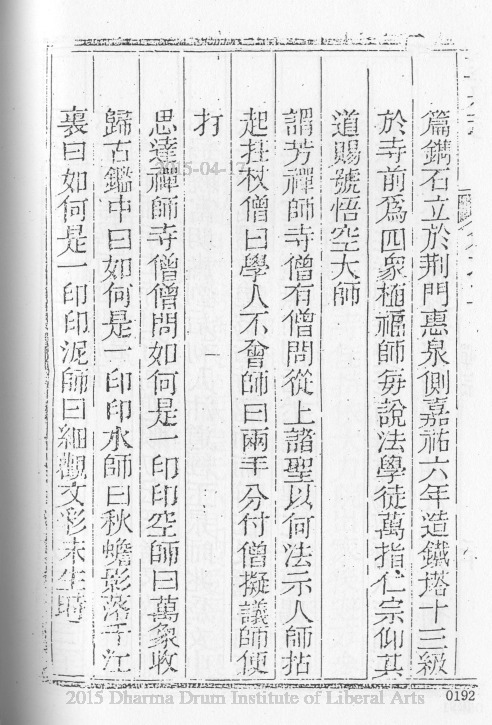 篇鐫石立於荆門惠泉側嘉祐六年造鐵塔十三級
於寺前爲四衆植福師每說法學徒萬指仁宗仰其
道賜號悟空大師
謂芳禪師寺僧有僧問從上諸聖以何法示人師拈
起拄杖僧曰學人不會師曰兩手分付僧擬議師便
打
思達禪師寺僧僧問如何是一印印空師曰萬象收
歸古鑑中曰如何是一印印水師曰秋蟾影落千江
裏曰如何是一印印泥師曰細觀文彩未生時
2015-04-17
2015 Dharma Drum Institute of Liberal Arts
0192